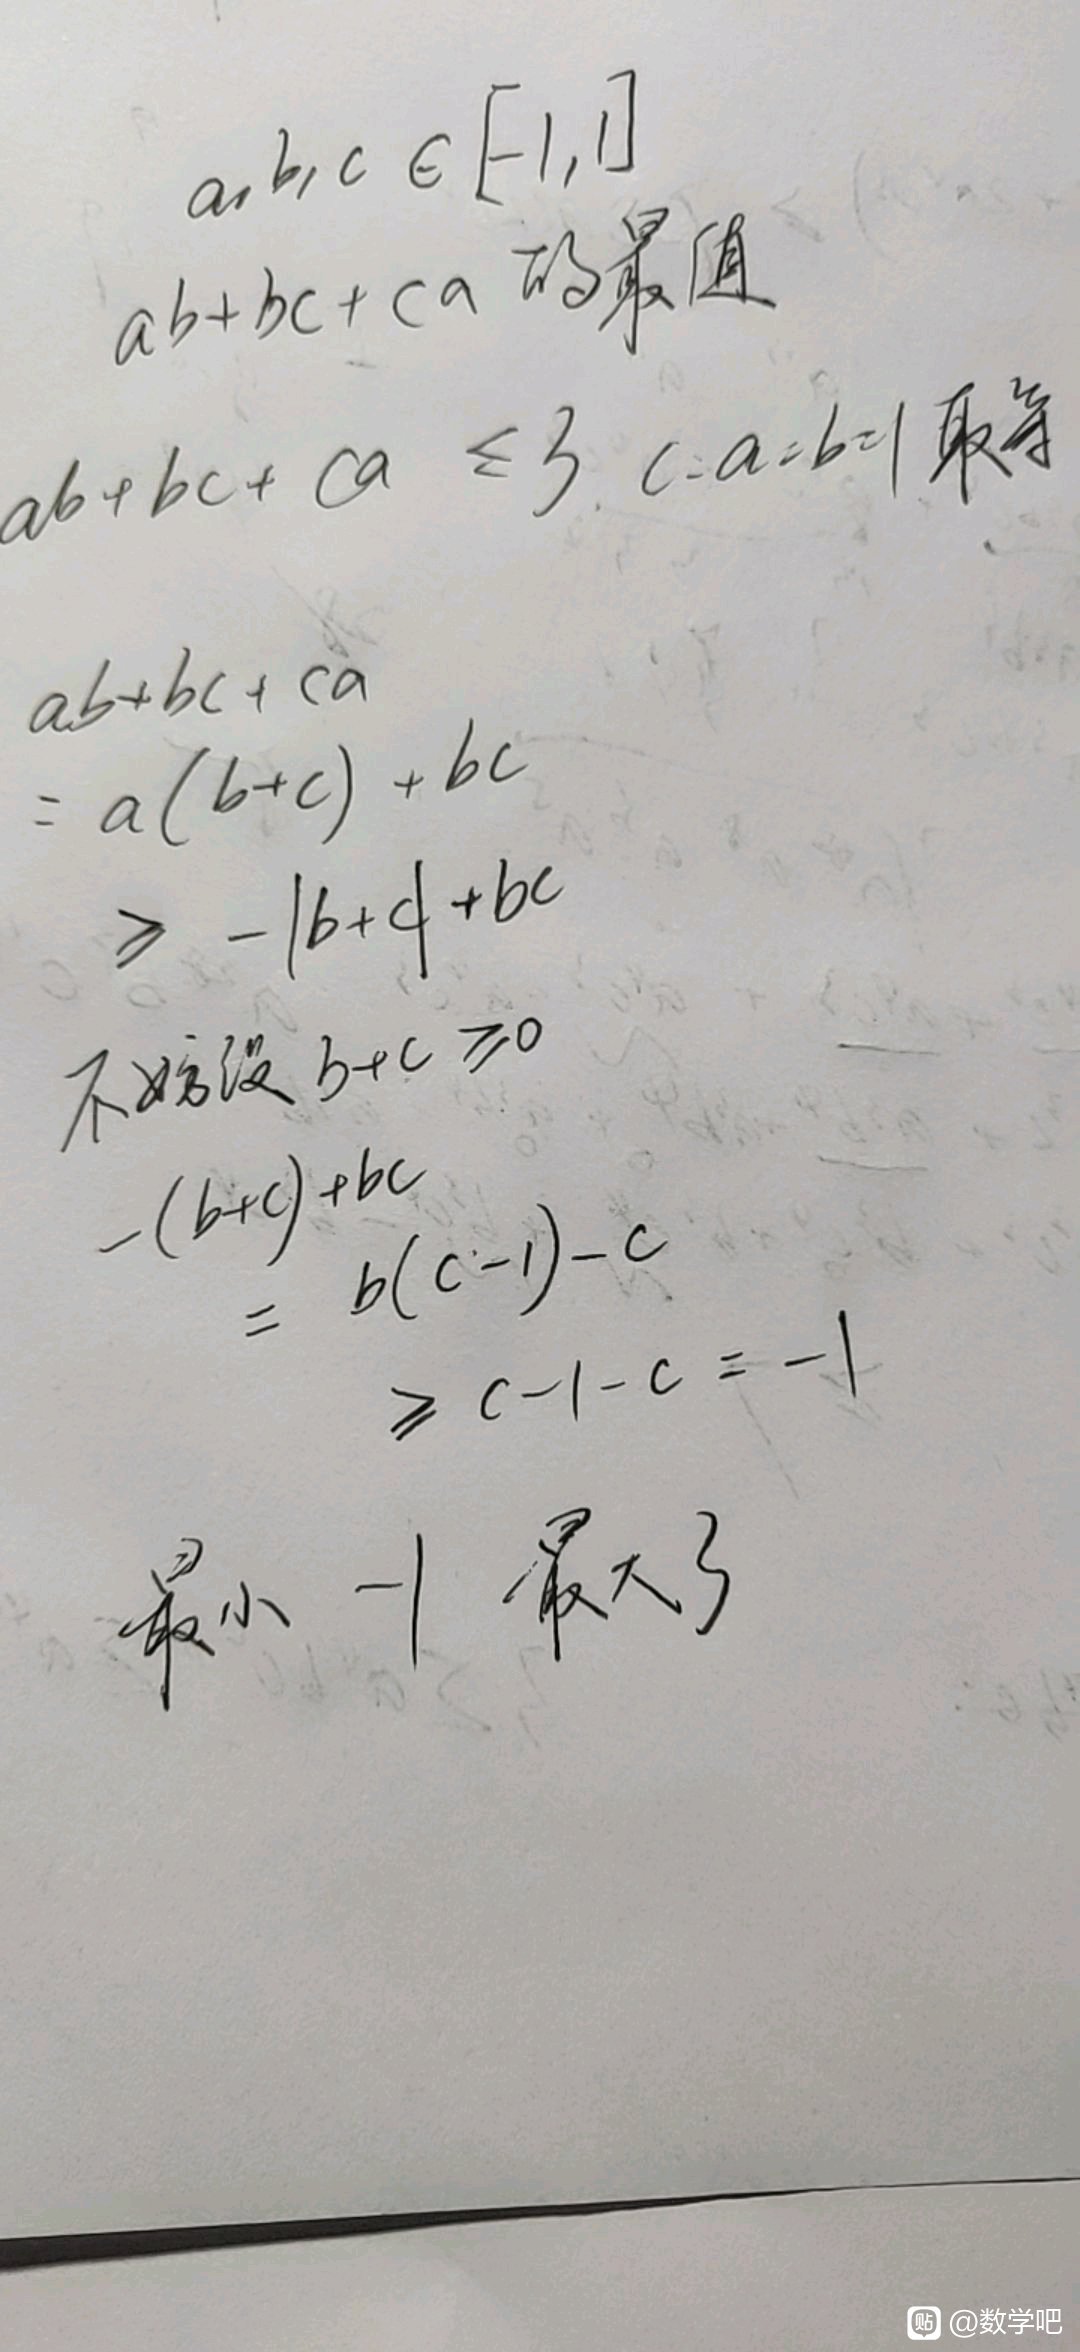 a,b,c ∈ [-1,1]
ab+bc+ca 的最值
ab+bc+ca ≤3 c=a=b=1取等
ab+bc+ca
= a(b+c)+bc
≥ -|b+c|+bc
不妨设 b+c ≥0
-(b+c)+bc
= b(c-1)-c
≥ c-1-c = -1
最小 -1 最大3
贴 @数学吧